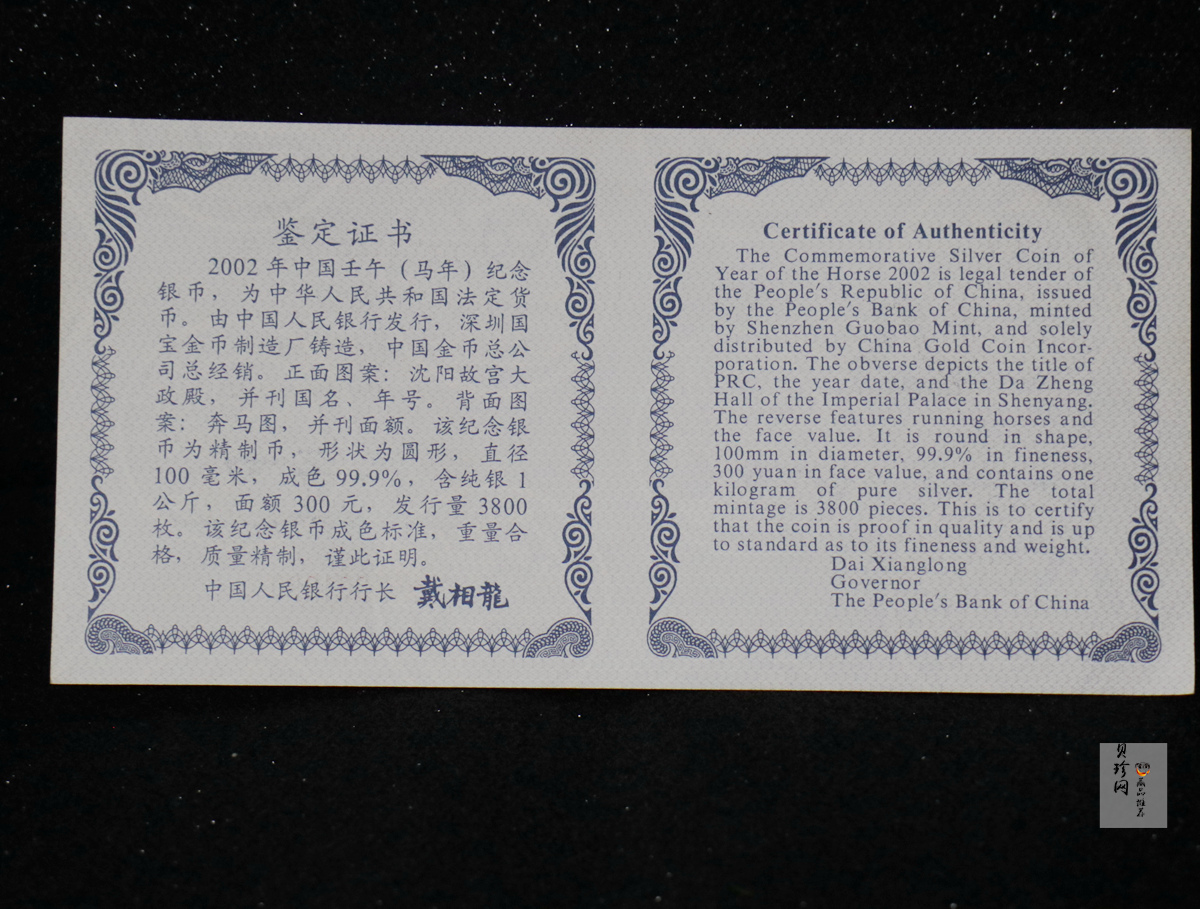 鉴定证书
2002 年中国壬午（马年）纪念
银币，为中华人民共和国法定货
币。由中国人民银行发行，深圳国
宝金币制造厂铸造，中国金币总公
司总经销。正面图案：沈阳故宫大
政殿，并刊国名、年号。背面图
案：奔马图，并刊面额。该纪念银
币为精制币，形状为圆形，直径
100 毫米，成色 99.9%，含纯银 1
公斤，面额 300 元，发行量 3800
枚。该纪念银币成色标准，重量合
格，质量精制，谨此证明。
中国人民银行行长 戴相龍
Certificate of Authenticity
The Commemorative Silver Coin of
Year of the Horse 2002 is legal tender of
the People's Republic of China, issued
by the People's Bank of China, minted
by Shenzhen Guobao Mint, and solely
distributed by China Gold Coin Incor-
poration. The obverse depicts the title of
PRC, the year date, and the Da Zheng
Hall of the Imperial Palace in Shenyang.
The reverse features running horses and
the face value. It is round in shape,
100mm in diameter, 99.9% in fineness,
300 yuan in face value, and contains one
kilogram of pure silver. The total
mintage is 3800 pieces. This is to certify
that the coin is proof in quality and is up
to standard as to its fineness and weight.
Dai Xianglong
Governor
The People's Bank of China
贝珍网
藏品推荐